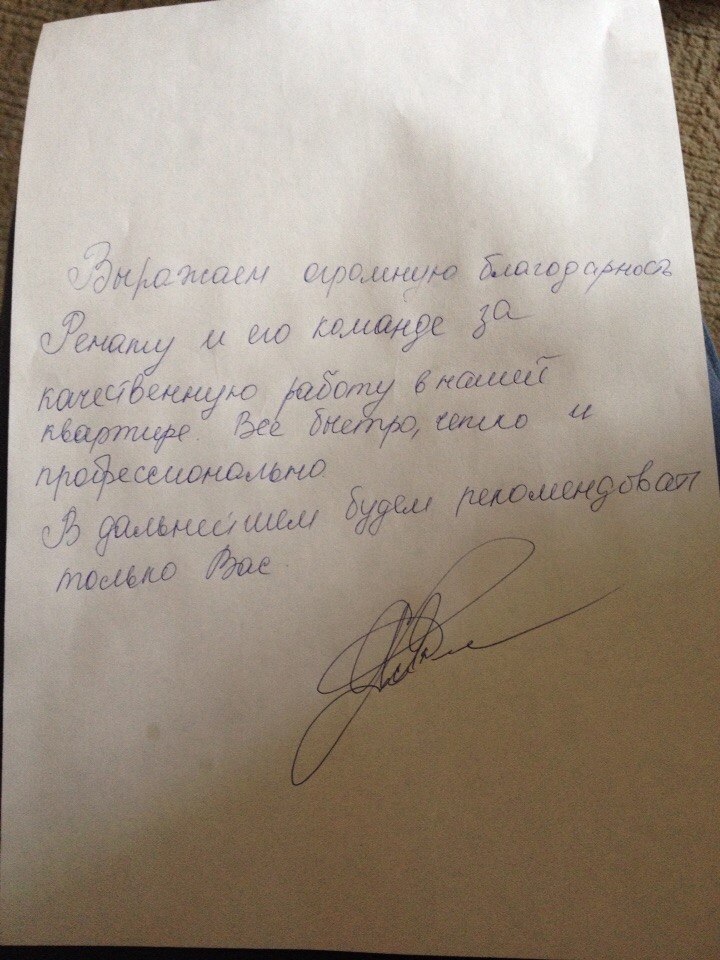 Выражаем огромную благодарность
Ренату и его команде за
качественную работу в нашей
квартире. Все быстро, четко и
профессионально.
В дальнейшем будем рекомендовать
только Вас.